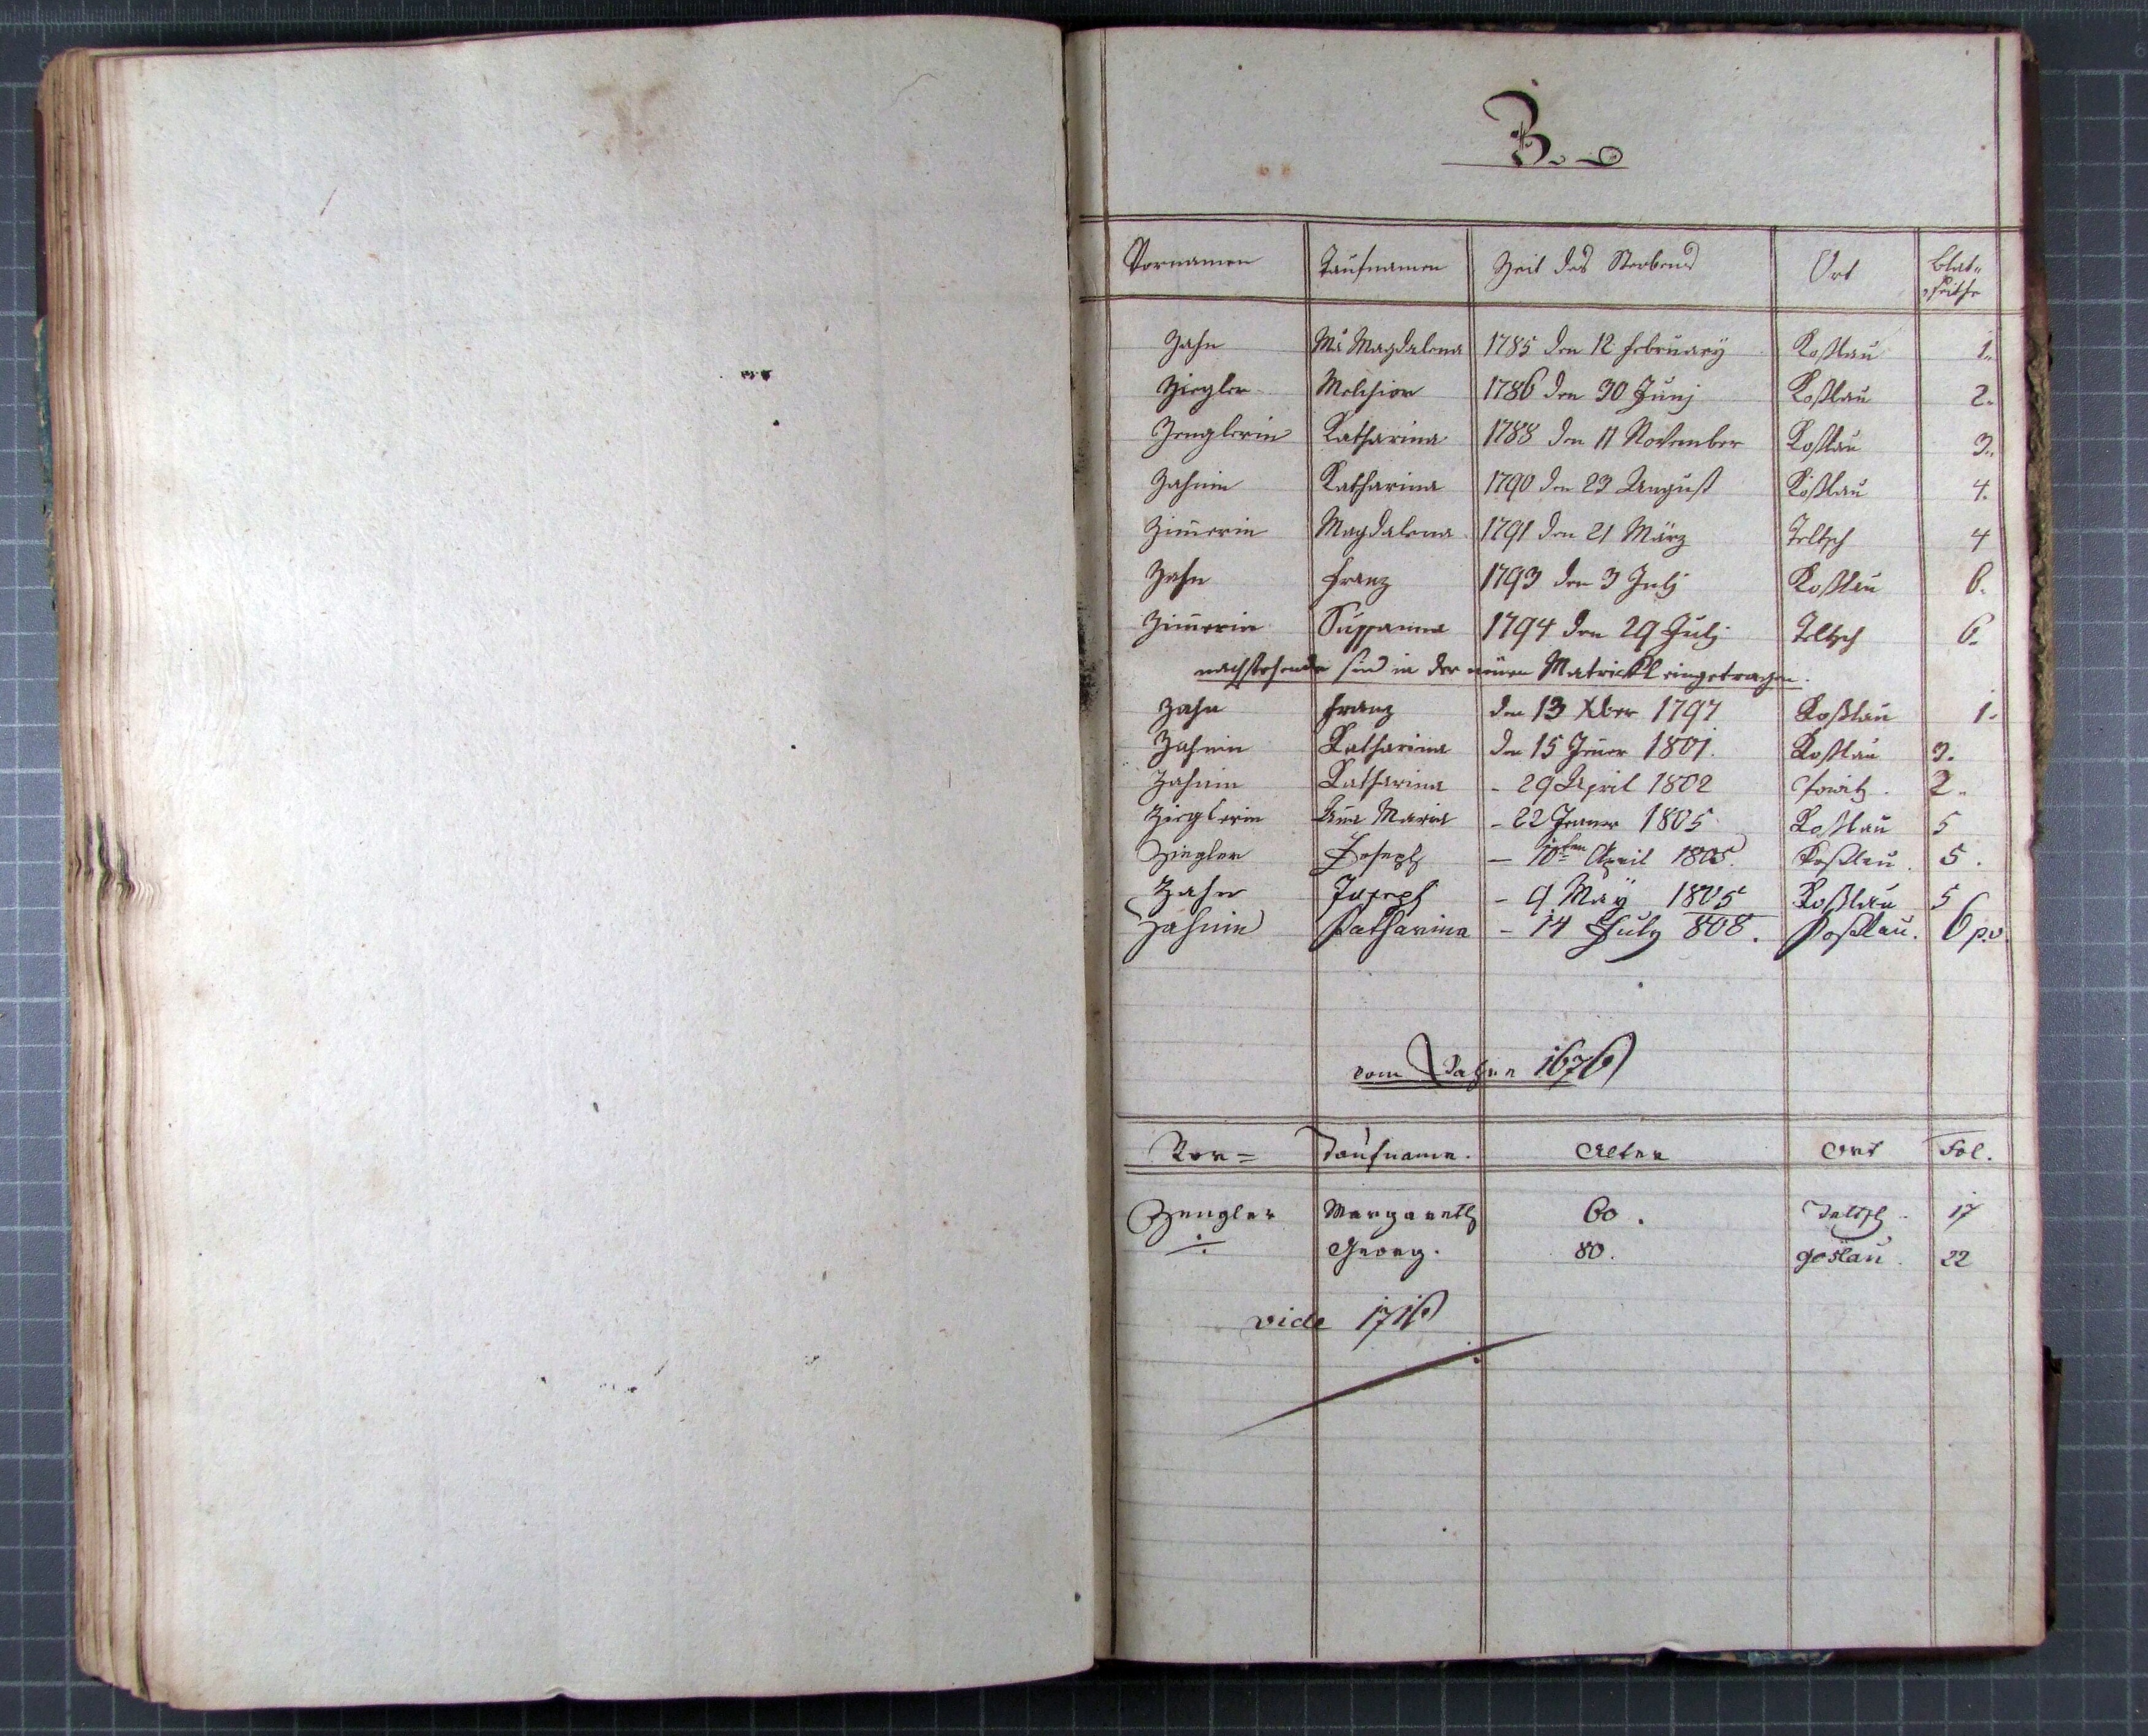 Z.
Vornamen Taufnamen Zeit des Sterbens Ort Blat„
„seithe
Zahn Ma Magdalena 1785 den 12 February Koßlau 1.
Ziegler Melchior 1786 den 30 Junj Koßlau 2.
Zenglerin Katharina 1788 den 11 November Koßlau 3.
Zahnin Katharina 1790 den 23 August Koßlau 4.
Zim̄erin Magdalena 1791 den 21 März Teltsch 4
Zahn Franz 1793 den 3 Julj Koßlau 6.
Zim̄erin Susanna 1794 den 29 Julj Teltsch 6.
nachstehende sind in der neuen Matrickl eingetragen.
Zahn Franz den 13 Xber 1797 Koßlau 1.
Zahnin Katharina den 15 Jener 1801. Koßlau 3.
Zahnin Katharina - 29 April 1802 2.
Zieglerin Ana Maria - 22 Jenner 1805 Koßlau 5
Ziegler Joseph - 10ten April 1805. Koßlau. 5.
Zahn Joseph - 9 May 1805 Koßlau 5
Zahnin Katharina - 14 July 808. Koßlau. 6 p.v.
vom Jahre 1676
Vor= Taufname. Alter Ort Fol.
Zengler Margareth 60. Teltsch. 17
÷ Georg. 80. goslau. 22
vide 1716